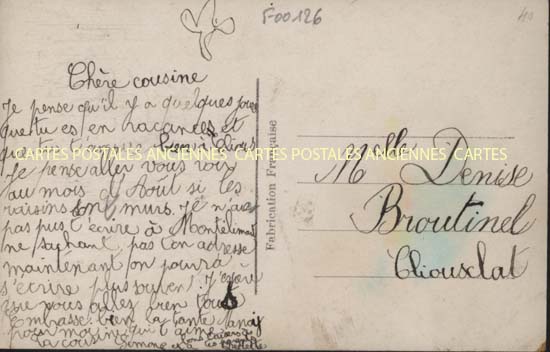 F00126
40
Chère cousine
Je pense qu'il y a quelques jour
que tu es en vacances et
que
Je pense aller vous voir
au mois d'Août si les
raisins sont murs. Je n'avais
pas put t'écrire à Montélimar
ne sachant pas ton adresse
maintenant on pourra
s'écrire plus souvent. J'espère
que vous allez bien tous
Embrasse bien ta tante
pour moi qui t'aime
ta cousine Simone
CARTES POSTALES ANCIENNES CARTES POSTALES ANCIENNES CARTES
Fabrication Française
Melle Denise
Broutinel
Cliousclat